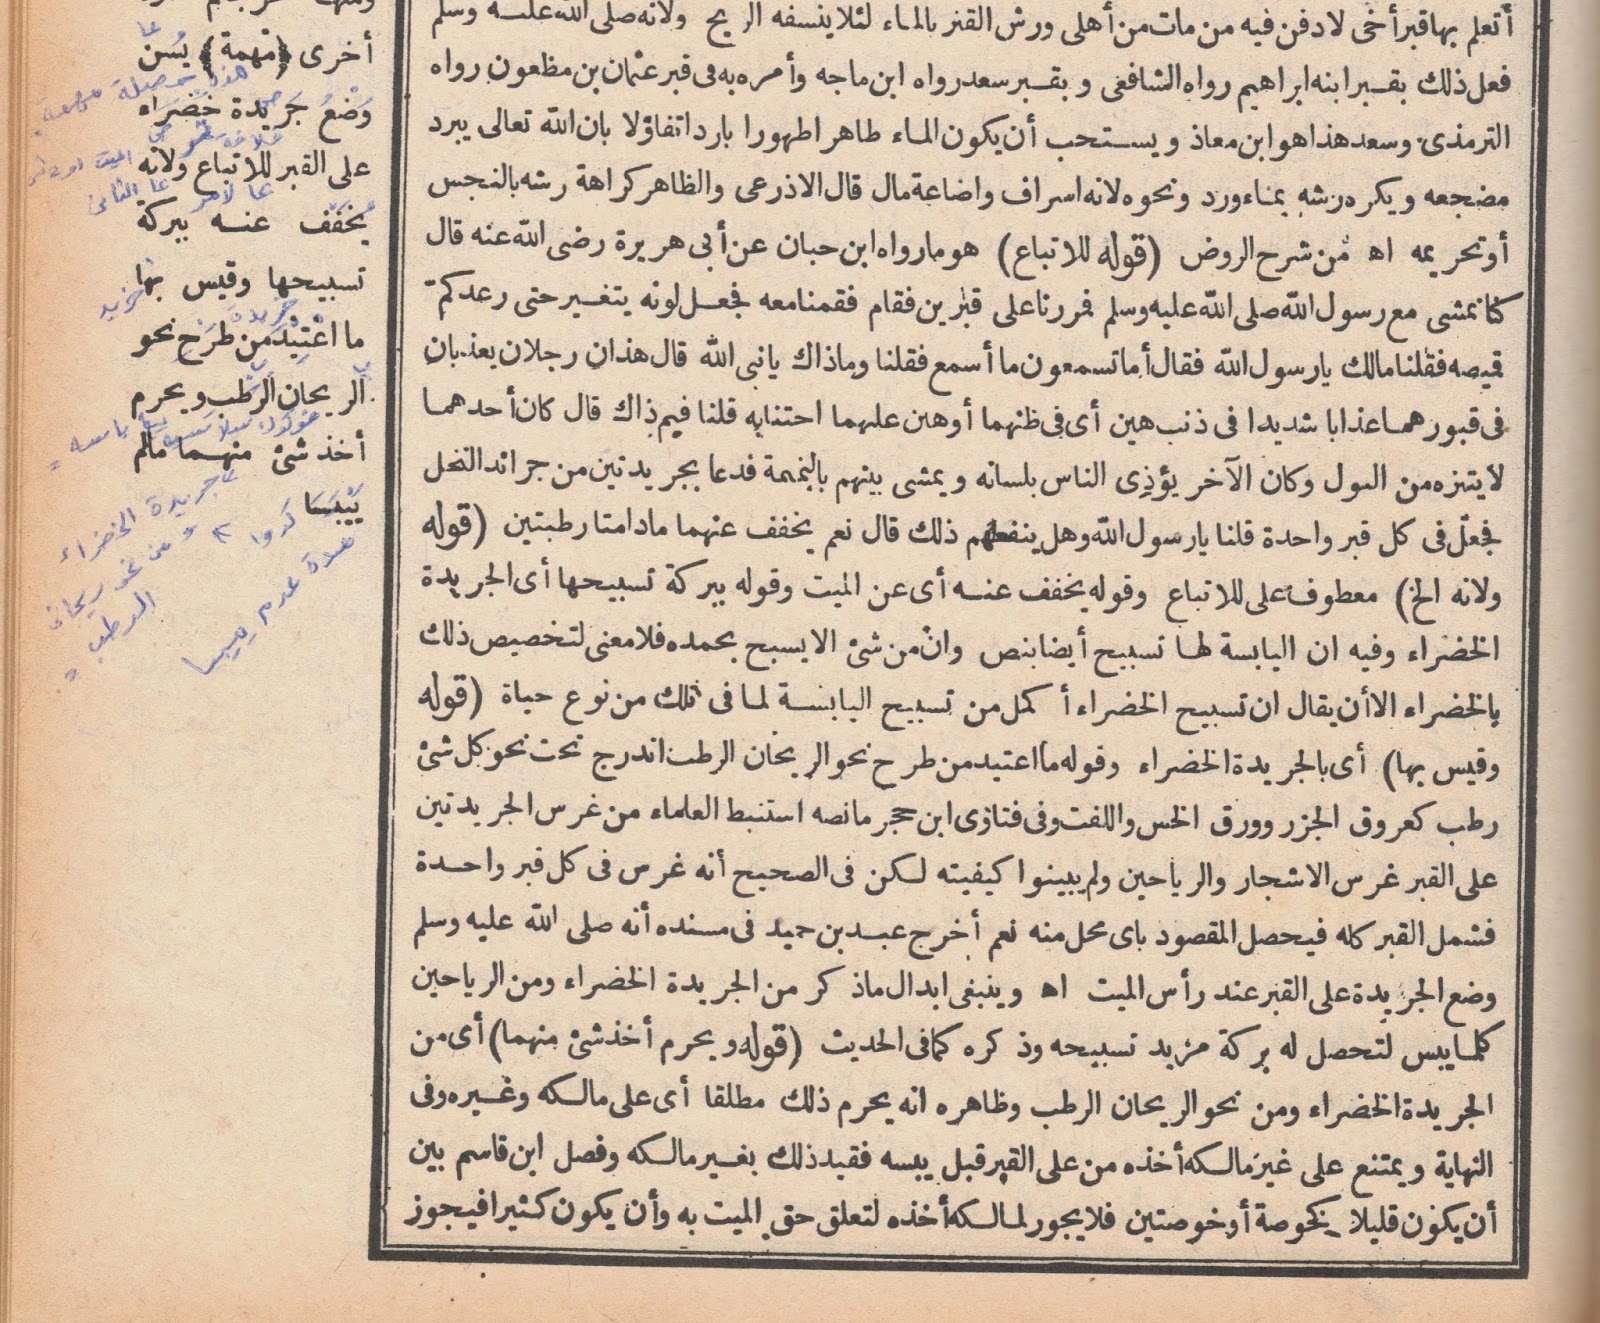 أتعلم بها قبر أخى لادفن فيه من مات من أهلى ورش القبر بالماء لئلا ينسفه الريح ولانه صلى الله عليه وسلم
فعل ذلك بقبر ابنه ابراهيم رواه الشافعى وبقبر سعد رواه ابن ماجه وأمر به فى قبر عثمان بن مظعون رواه
الترمذى وسعد هذا هو ابن معاذ ويستحب أن يكون الماء طاهرا طهورا باردا تفاؤلا بان الله تعالى يبرد
مضجعه ويكره رشه بماء ورد ونحوه لانه اسراف واضاعة مال قال الاذرعى والظاهر كراهة رشه بالنجس
أو تحريمه اه من شرح الروض (قوله للاتباع) هو ما رواه ابن حبان عن أبى هريرة رضى الله عنه قال
كنا نمشى مع رسول الله صلى الله عليه وسلم فمررنا على قبرين فقام فقمنا معه فجعل لونه يتغير حتى رعد كم
قميصه فقلنا مالك يا رسول الله فقال أما تسمعون ما أسمع فقلنا وما ذاك يا نبى الله قال هذان رجلان يعذبان
فى قبورهما عذابا شديدا فى ذنب هين أى فى ظنهما أو هين عليهما اجتنابه قلنا فيم ذاك قال كان أحدهما
لا يتنزه من البول وكان الآخر يؤذى الناس بلسانه ويمشى بينهم بالنميمة فدعا بجريدتين من جرائد النخل
فجعل فى كل قبر واحدة قلنا يا رسول الله وهل ينفعهم ذلك قال نعم يخفف عنهما مادامتا رطبتين (قوله
ولانه الخ) معطوف على للاتباع وقوله يخفف عنه أى عن الميت وقوله ببركة تسبيحها أى الجريدة
الخضراء وفيه ان اليابسة لها تسبيح أيضا بنص وان من شئ الا يسبح بحمده فلا معنى لتخصيص ذلك
بالخضراء الا أن يقال ان تسبيح الخضراء أكمل من تسبيح اليابسة لما فى تلك من نوع حياة (قوله
وقيس بها) أى بالجريدة الخضراء وقوله ما اعتيد من طرح نحو الريحان الرطب اندرج تحت نحو كل شئ
رطب كعروق الجزر وورق الخس واللفت وفى فتاوى ابن حجر ما نصه استنبط العلماء من غرس الجريدتين
على القبر غرس الاشجار والرياحين ولم يبينوا كيفيته لكن فى الصحيح أنه غرس فى كل قبر واحدة
فشمل القبر كله فيحصل المقصود باى محل منه نعم أخرج عبد بن حميد فى مسنده أنه صلى الله عليه وسلم
وضع الجريدة على القبر عند رأس الميت اه وينبغى ابدال ما ذكر من الجريدة الخضراء ومن الرياحين
كلما يبس لتحصل له بركة مزيد تسبيحه وذكره كما فى الحديث (قوله ويحرم أخذ شئ منهما) أى من
الجريدة الخضراء ومن نحو الريحان الرطب وظاهره انه يحرم ذلك مطلقا أى على مالكه وغيره وفى
النهاية ويمتنع على غير مالكه أخذه من على القبر قبل يبسه فقيد ذلك بغير مالكه وفصل ابن قاسم بين
أن يكون قليلا كخوصة أو خوصتين فلا يجوز لمالكه أخذه لتعلق حق الميت به وأن يكون كثيرا فيجوز
أخرى ﴿مهمة﴾ يُسنّ
وَضْعُ جَريدة خضراء
على القبر للاتباع ولانه
يُخَفَّف عنه ببركة
تسبيحها وقيس بها
ما اعْتِيْدَ من طَرْح نحو
الريحان الرَّطْب ويحرم
أخذ شئ منهما ما لم
يَيْبَسَا
جريدة الخضراء
و من نحو ريحان
الرطب
مدة عدم يبسهما